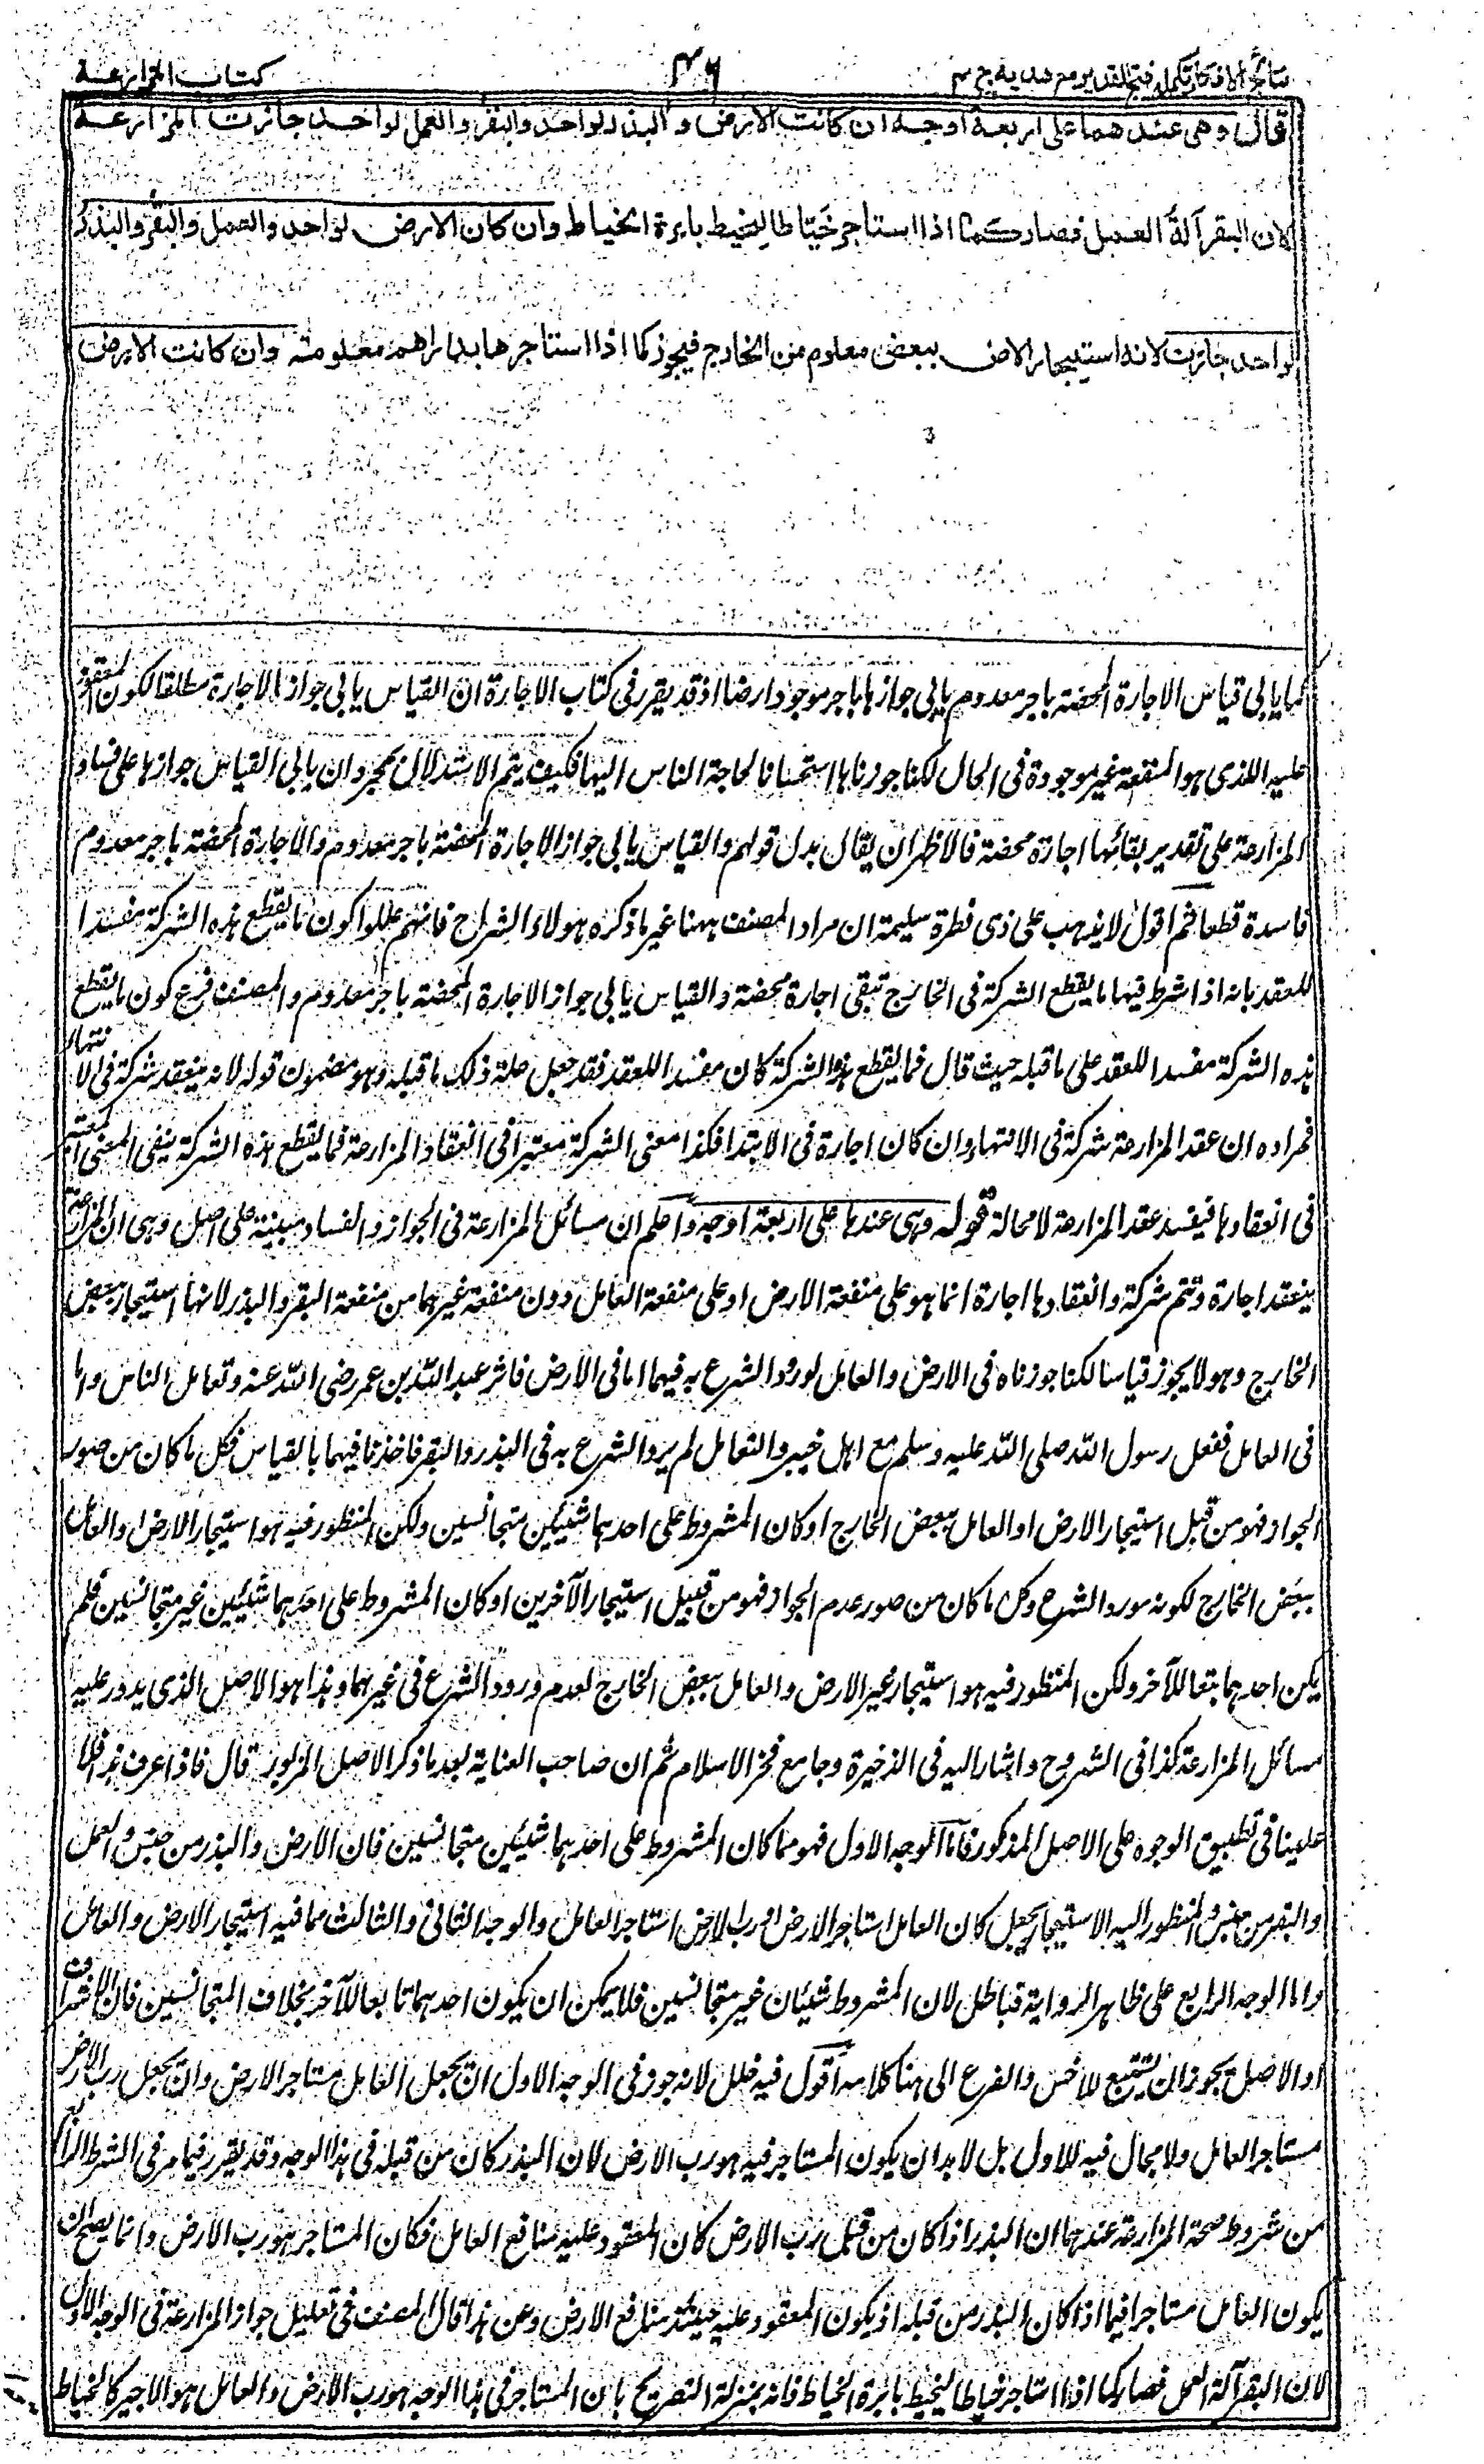 نتائج الافكار تكملہ فتح القدیر مع هدایه ج ۴
۴۶
كتاب المزارعة
قال وهى عندهما على اربعة اوجه ان كانت الارض والبذر لواحد والبقر والعمل لواحد جازت المزارعة
لان البقر آلة العمل فصار كما اذا استاجر خياطا ليخيط بابرة الخياط وان كان الارض لواحد والعمل والبقر والبذر
لواحد جازت لانه استيجار الارض ببعض معلوم من الخارج فيجوز كما اذا استاجرها بدراهم معلومة وان كانت الارض
كما يابى قياس الاجارة المحضة باجر معدوم يابى جوازها باجر موجود ارضا اذ قد تقرر فى كتاب الاجارة ان القياس يابى جواز الاجارة مطلقا لكون المعقود
عليه الذى هو المنفعة غير موجودة فى الحال لكنا جوزناها استحسانا لحاجة الناس اليها فكيف يتم الاستدلال بمجرد ان يابى القياس جوازها على فساد
المزارعة على تقدير بقائها اجارة محضة فالاظهر ان يقال بدل قولهم والقياس يابى جواز الاجارة المحضة باجر معدوم والاجارة المحضة باجر معدوم
فاسدة قطعا ثم اقول لا يذهب على ذى فطرة سليمة ان مراد المصنف ههنا غير ما ذكره هولاء الشراح فانهم عللوا كون ما يقطع هذه الشركة مفسدا
للعقد بانه اذا شرط فيها ما يقطع الشركة فى الخارج تبقى اجارة محضة والقياس يابى جواز الاجارة المحضة باجر معدوم والمصنف فرع كون ما يقطع
هذه الشركة مفسدا للعقد على ما قبله حيث قال فما يقطع هذه الشركة كان مفسدا للعقد فقد جعل علة ذلك ما قبله وهو مضمون قوله لانه ينعقد شركة فى الانتهاء
فمراده ان عقد المزارعة شركة فى الانتهاء وان كان اجارة فى الابتدا فكذا معنى الشركة معتبر فى انعقاد المزارعة فما يقطع هذه الشركة ينفى المعنى المعتبر
فى انعقادها فيفسد عقد المزارعة لا محالة قوله وهى عندهما على اربعة اوجه واعلم ان مسائل المزارعة فى الجواز والفساد مبنية على اصل وهى ان المزارعة
ينعقد اجارة وتتم شركة وانعقادها اجارة انما هو على منفعة الارض او على منفعة العامل دون منفعة غيرهما من منفعة البقر والبذر لانها استيجار ببعض
الخارج وهو لا يجوز قياسا لكنا جوزناه فى الارض والعامل لورود الشرع به فيهما اما فى الارض فاثر عبد الله بن عمر رضى الله عنه وتعامل الناس واما
فى العامل ففعل رسول الله صلى الله عليه وسلم مع اهل خيبر والتعامل لم يرد الشرع به فى البذر والبقر فاخذنا فيهما بالقياس فكل ما كان من صور
الجواز فهو من قبل استيجار الارض او العامل ببعض الخارج او كان المشروط على احدهما شيئين متجانسين ولكن المنظور فيه هو استيجار الارض او العامل
ببعض الخارج لكونه مورد الشرع وكل ما كان من صور عدم الجواز فهو من قبيل استيجار الآخرين او كان المشروط على احدهما شيئين غير متجانسين فلم
يكن احدهما تبعا للآخر ولكن المنظور فيه هو استيجار غير الارض والعامل ببعض الخارج لعدم ورود الشرع فى غيرهما وهذا هو الاصل الذى يدور عليه
مسائل المزارعة كذا فى الشروح واشار اليه فى الذخيرة وجامع فخر الاسلام ثم ان صاحب العناية بعد ما ذكر الاصل المزبور قال فاذا عرف هذا فلا
علينا فى تطبيق الوجوه على الاصل المذكور فاما الوجه الاول فهو مما كان المشروط على احدهما شيئين متجانسين فان الارض والبذر من جنس والعمل
والبقر من جنس والمنظور اليه الاستيجار بجعل كان العامل استاجر الارض او رب الارض استاجر العامل والوجه الثانى والثالث مما فيه استيجار الارض والعامل
واما الوجه الرابع على ظاهر الرواية فباطل لان المشروط شيئان غير متجانسين فلا يمكن ان يكون احدهما تابعا للآخر بخلاف المتجانسين فان الاشرف
او الاصل يجوز ان يستتبع للاخس والفرع الى هنا كلامه اقول فيه خلل لانه جوز فى الوجه الاول ان يجعل العامل مستاجر الارض وان يجعل رب الارض
مستاجر العامل ولا مجال فيه للاول بل لا بد ان يكون المستاجر فيه هو رب الارض لان البذر كان من قبله فى هذا الوجه وقد تقرر فيما مر فى الشرط الرابع
من شروط صحة المزارعة عندهما ان البذر اذا كان من قبل رب الارض كان المعقود عليه منافع العامل فكان المستاجر هو رب الارض وانما يصح ان
يكون العامل مستاجرا فيما اذا كان البذر من قبله اذ يكون المعقود عليه حينئذ منافع الارض وعن هذا قال المصنف فى تعليل جواز المزارعة فى الوجه الاول
لان البقر آلة العمل فصار كما اذا استاجر خياطا ليخيط بابرة الخياط فانه بمنزلة التصريح بان المستاجر فى هذا الوجه هو رب الارض والعامل هو الاجير كالخياط